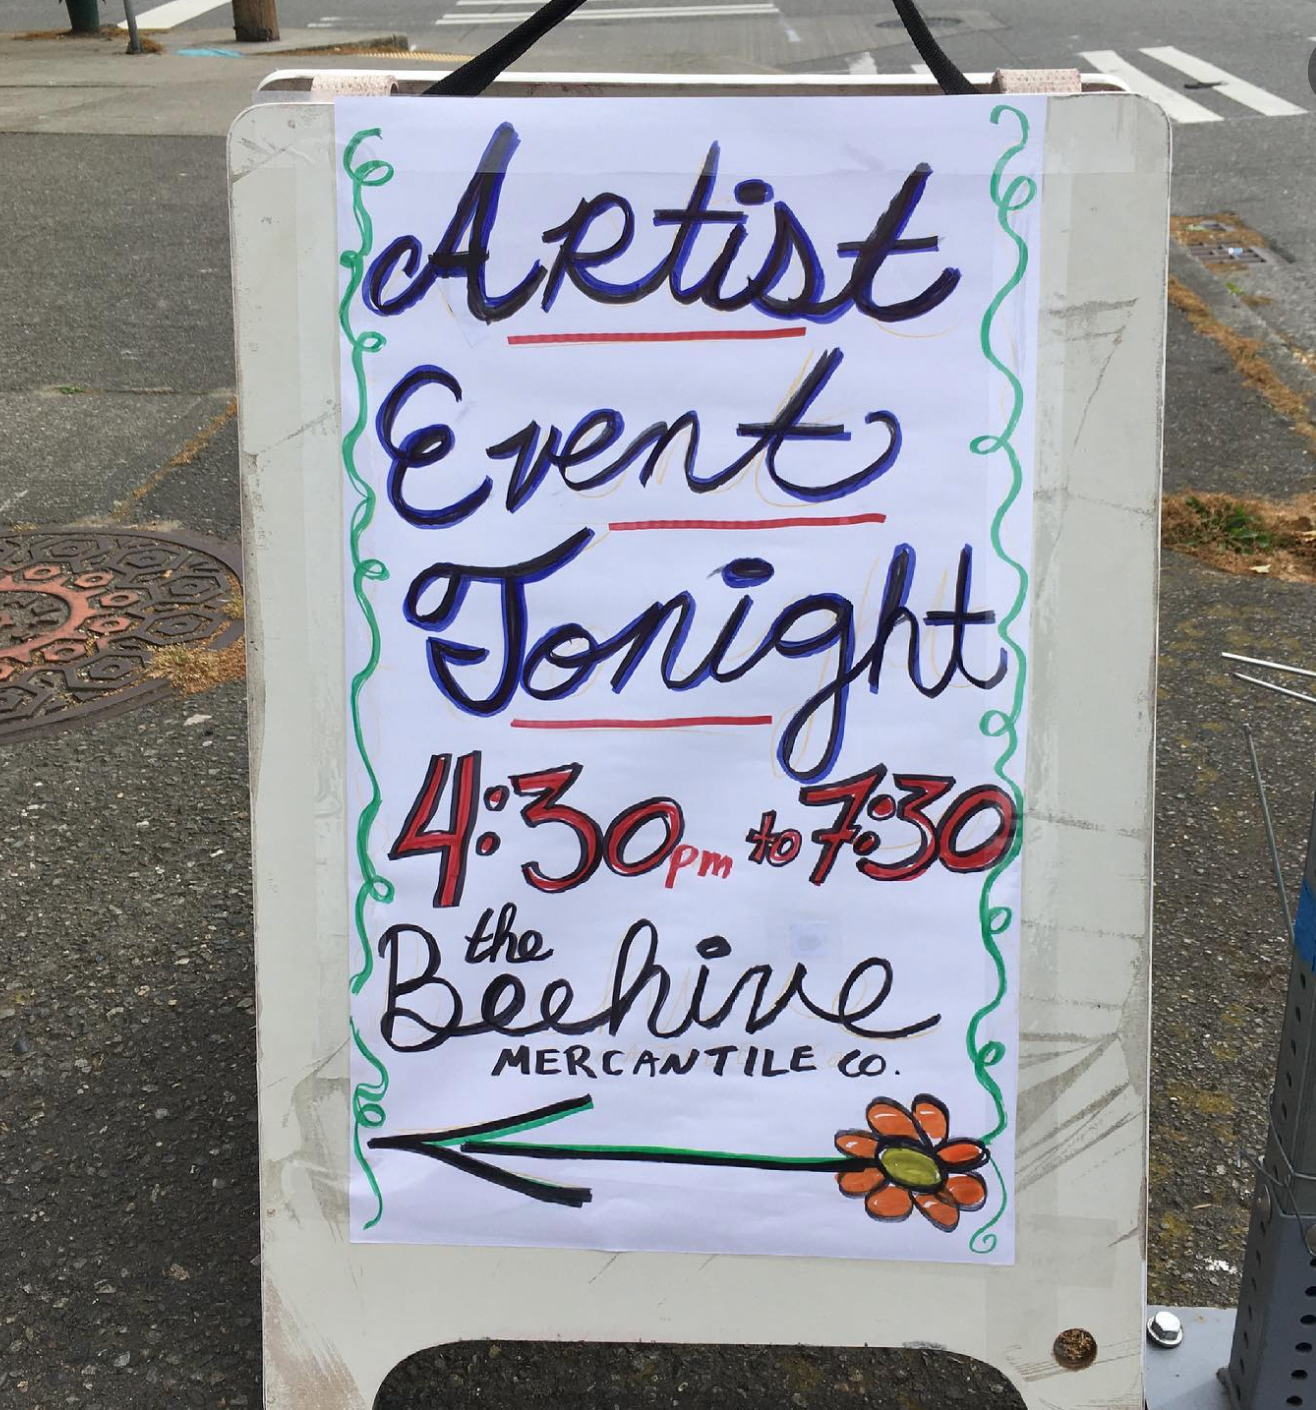 Artist
Event
Tonight
4:30pm to 7:30
the
Beehive
MERCANTILE CO.